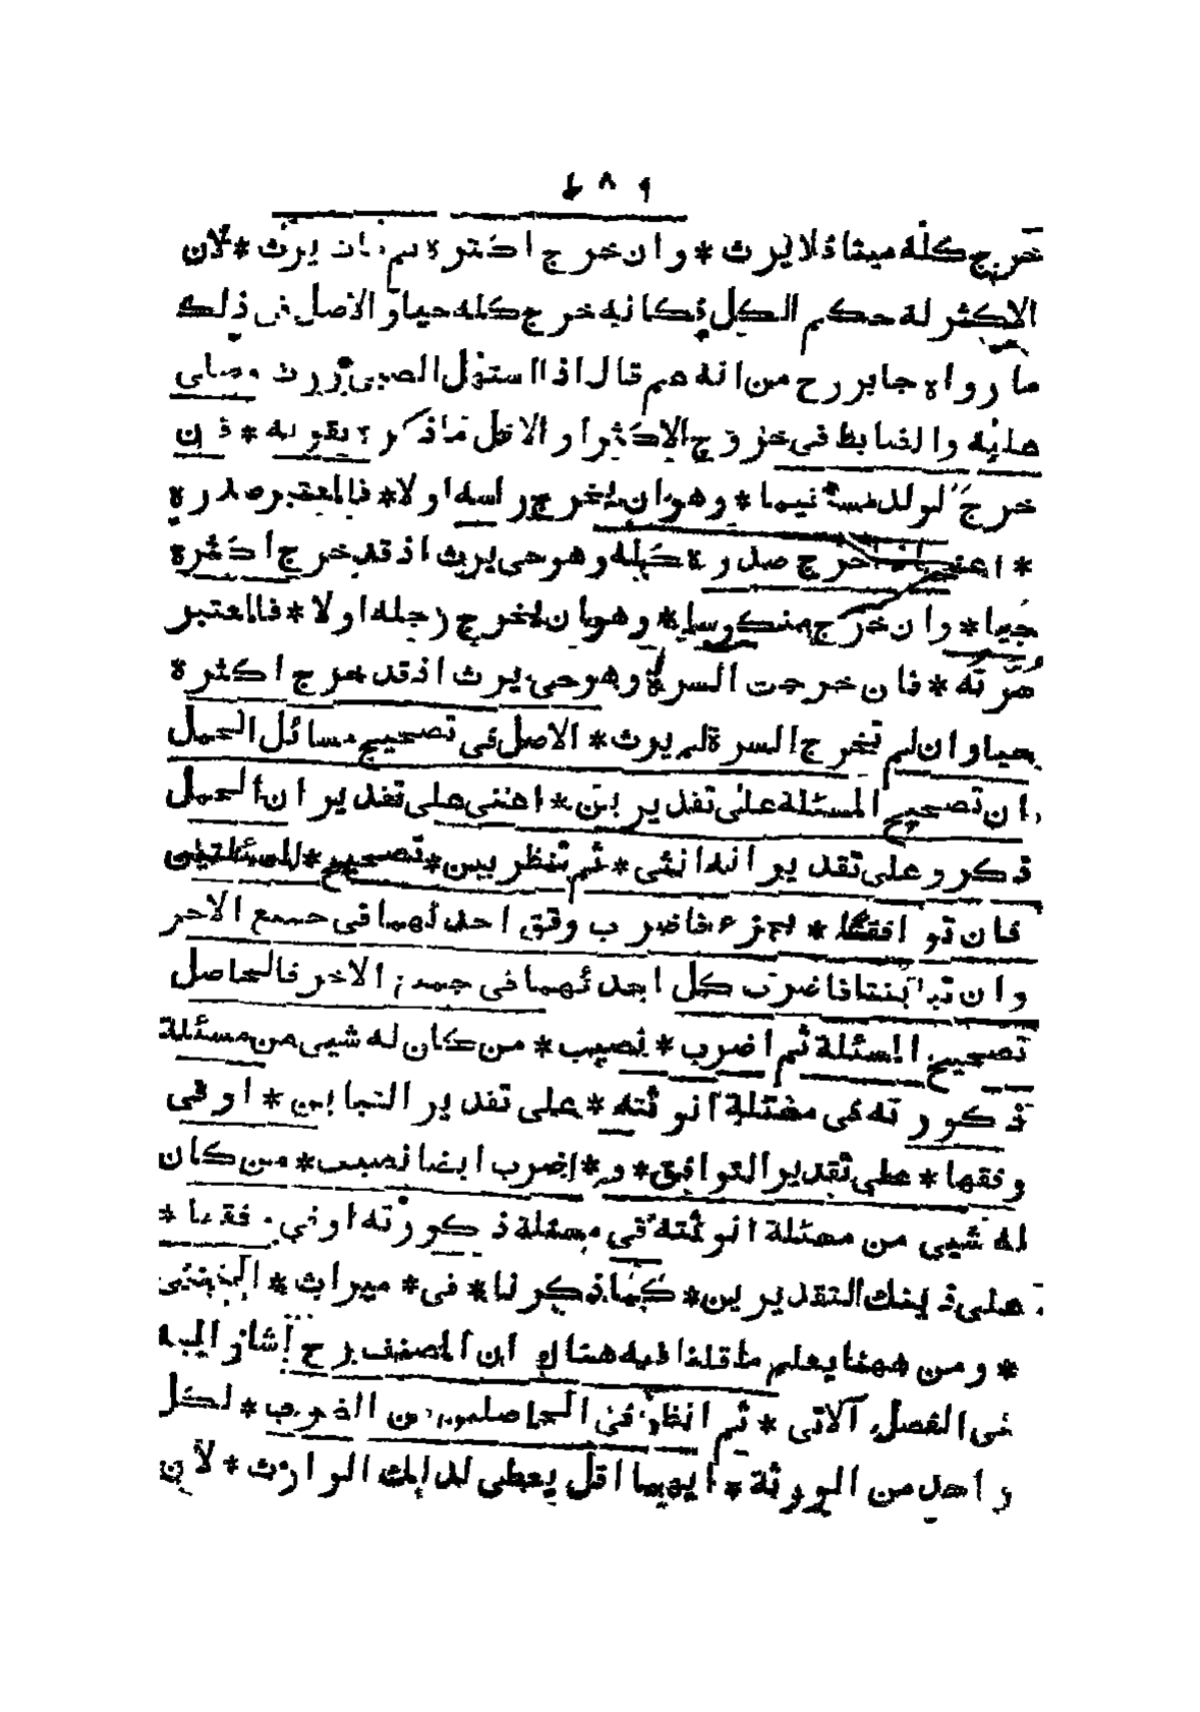 خرج كله ميتا فلا يرث * وان خرج اكثره ثم مات يرث * لان
الاكثر له حكم الكل فكانه خرج كله حيا والاصل فى ذلك
ما رواه جابر رح من انه عم قال اذا استهل الصبى ورث وصلى
عليه والضابط فى خروج الاكثر او الاقل ما ذكره بقوله * فان
خرج الولد مستقيما * وهو ان يخرج راسه اولا * فالمعتبر صدره
* اعنى اذا خرج صدره كله وهو حى يرث اذ قد خرج اكثره
حيا * وان خرج منكوسا * وهو ان يخرج رجله اولا * فالمعتبر
سرته * فان خرجت السرة وهو حى يرث اذ قد خرج اكثره
حيا وان لم تخرج السرة لم يرث * الاصل فى تصحيح مسائل الحمل
ان تصحيح المسئلة على تقديرين * اعنى على تقدير ان الحمل
ذكر وعلى تقدير انه انثى * ثم تنظر بين * تصحيح * المسئلتين
فان توافقتا * بجزء فاضرب وفق احدٮهما فى جميع الاخر
وان تباينتا فاضرب كل احدئهما فى جميع الاخر فالحاصل
تصحيح المسئلة ثم اضرب * نصيب * من كان له شيى من مسئلة
ذكورته فى مسئلة انوثته * على تقدير التباين * او فى
وفقها * على تقدير التوافق * و * اضرب ايضا نصيب * من كان
له شيى من مسئلة انوثته فى مسئلة ذكورته او فى وفقها *
على ذينك التقديرين * كما ذكرنا * فى * ميراث * الخنثى
* ومن ههنا يعلم ما قلنا فيه هناك ان المصنف رح اشار اليه
فى الفصل الآتى * ثم انظر فى الحاصلين من الضرب * لكل
واحد من الورثة * ايهما اقل يعطى لذلك الوارث * لان